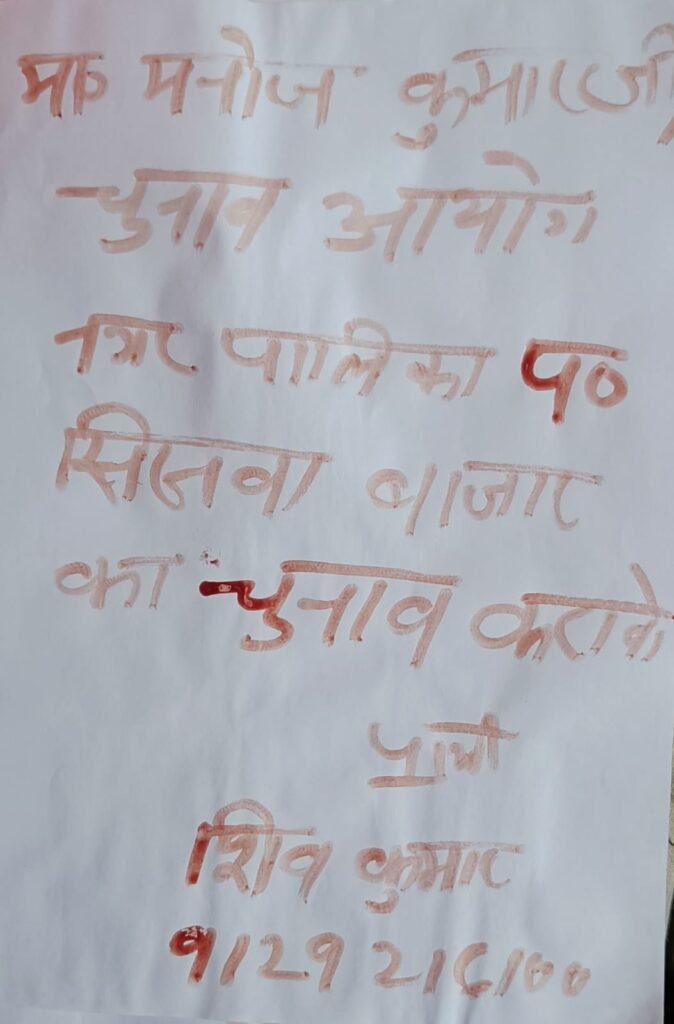 मा० मनोज कुमार जी
चुनाव आयोग
नगर पालिका प०
सिसवा बाजार
का चुनाव करावे
प्रार्थी
शिव कुमार
9129216100